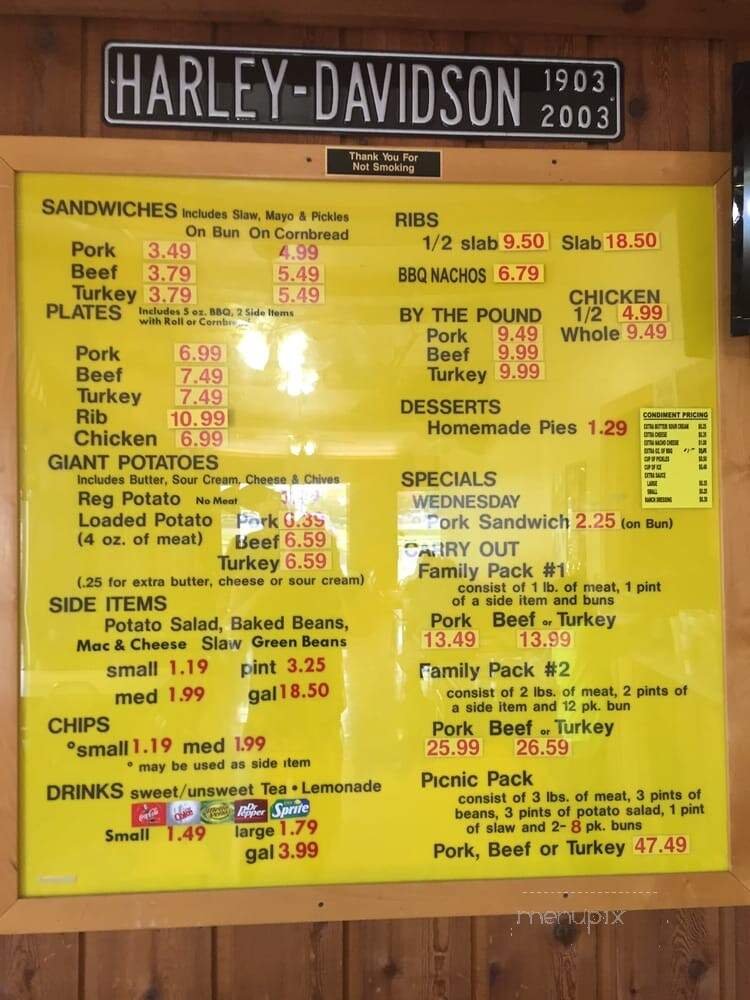 HARLEY-DAVIDSON 1903 2003
Thank You For
Not Smoking
SANDWICHES Includes Slaw, Mayo & Pickles
On Bun On Cornbread
Pork 3.49 4.99
Beef 3.79 5.49
Turkey 3.79 5.49
PLATES Includes 5 oz. BBQ, 2 Side Items
with Roll or Cornbread
Pork 6.99
Beef 7.49
Turkey 7.49
Rib 10.99
Chicken 6.99
GIANT POTATOES
Includes Butter, Sour Cream, Cheese & Chives
Reg Potato No Meat
Loaded Potato Pork 6.39
(4 oz. of meat) Beef 6.59
Turkey 6.59
(.25 for extra butter, cheese or sour cream)
SIDE ITEMS
Potato Salad, Baked Beans,
Mac & Cheese Slaw Green Beans
small 1.19 pint 3.25
med 1.99 gal 18.50
CHIPS
°small 1.19 med 1.99
° may be used as side item
DRINKS sweet/unsweet Tea • Lemonade
Coca-Cola Diet Coke Mello Yello Dr Pepper Sprite
Small 1.49 large 1.79
gal 3.99
RIBS
1/2 slab 9.50 Slab 18.50
BBQ NACHOS 6.79
CHICKEN
1/2 4.99
Whole 9.49
BY THE POUND
Pork 9.49
Beef 9.99
Turkey 9.99
DESSERTS
Homemade Pies 1.29
CONDIMENT PRICING
EXTRA BUTTER SOUR CREAM
EXTRA CHEESE
EXTRA NACHO CHEESE
EXTRA OZ. OF BBQ
CUP OF PICKLES
CUP OF ICE
EXTRA SAUCE
LARGE
SMALL
RANCH DRESSING
SPECIALS
WEDNESDAY
Pork Sandwich 2.25 (on Bun)
CARRY OUT
Family Pack #1
consist of 1 lb. of meat, 1 pint
of a side item and buns
Pork Beef or Turkey
13.49 13.99
Family Pack #2
consist of 2 lbs. of meat, 2 pints of
a side item and 12 pk. bun
Pork Beef or Turkey
25.99 26.59
Picnic Pack
consist of 3 lbs. of meat, 3 pints of
beans, 3 pints of potato salad, 1 pint
of slaw and 2- 8 pk. buns
Pork, Beef or Turkey 47.49
menupix